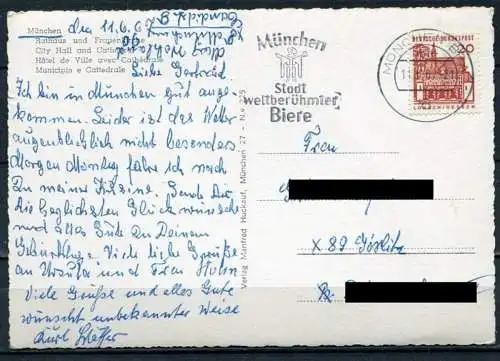 München
Rathaus und Frauenkirche
City Hall and Cathedral
Hôtel de Ville avec Cathédrale
Municipio e Cattedrale
den 11.6.6
Liebe Gertrud
Ich bin in München gut ange-
kommen. Leider ist das Wetter
augenblicklich nicht besonders
Morgen Montag fahre ich noch
zu meine Kusine. Sende Dir
die herzlichsten Glückwünsche
und alles Gute zu Deinem
Geburtstag. Viele liebe Grüße
an Ursula und Frau
Viele Grüße und alles Gute
wünscht unbekannter Weise
Kurl
Verlag Manfred Huckauf, München 27 - N.
München
Stadt
weltberühmter
Biere
MÜNCHEN
DEUTSCHE BUNDESPOST
20
LORSCH/HESSEN
Frau
X 89 Görlitz